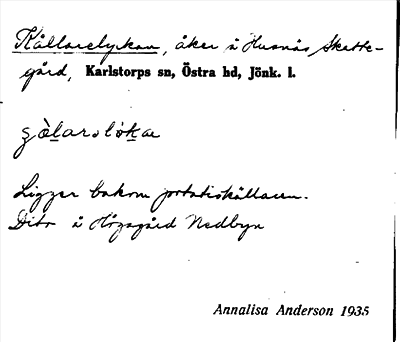 Källarelyckan, åker å Husnäs Skatte-
gård, Karlstorps sn, Östra hd, Jönk. l.
Ligger bakom potatiskällaren.
Dito å Högagärd Nedbyn
Annalisa Anderson 1935